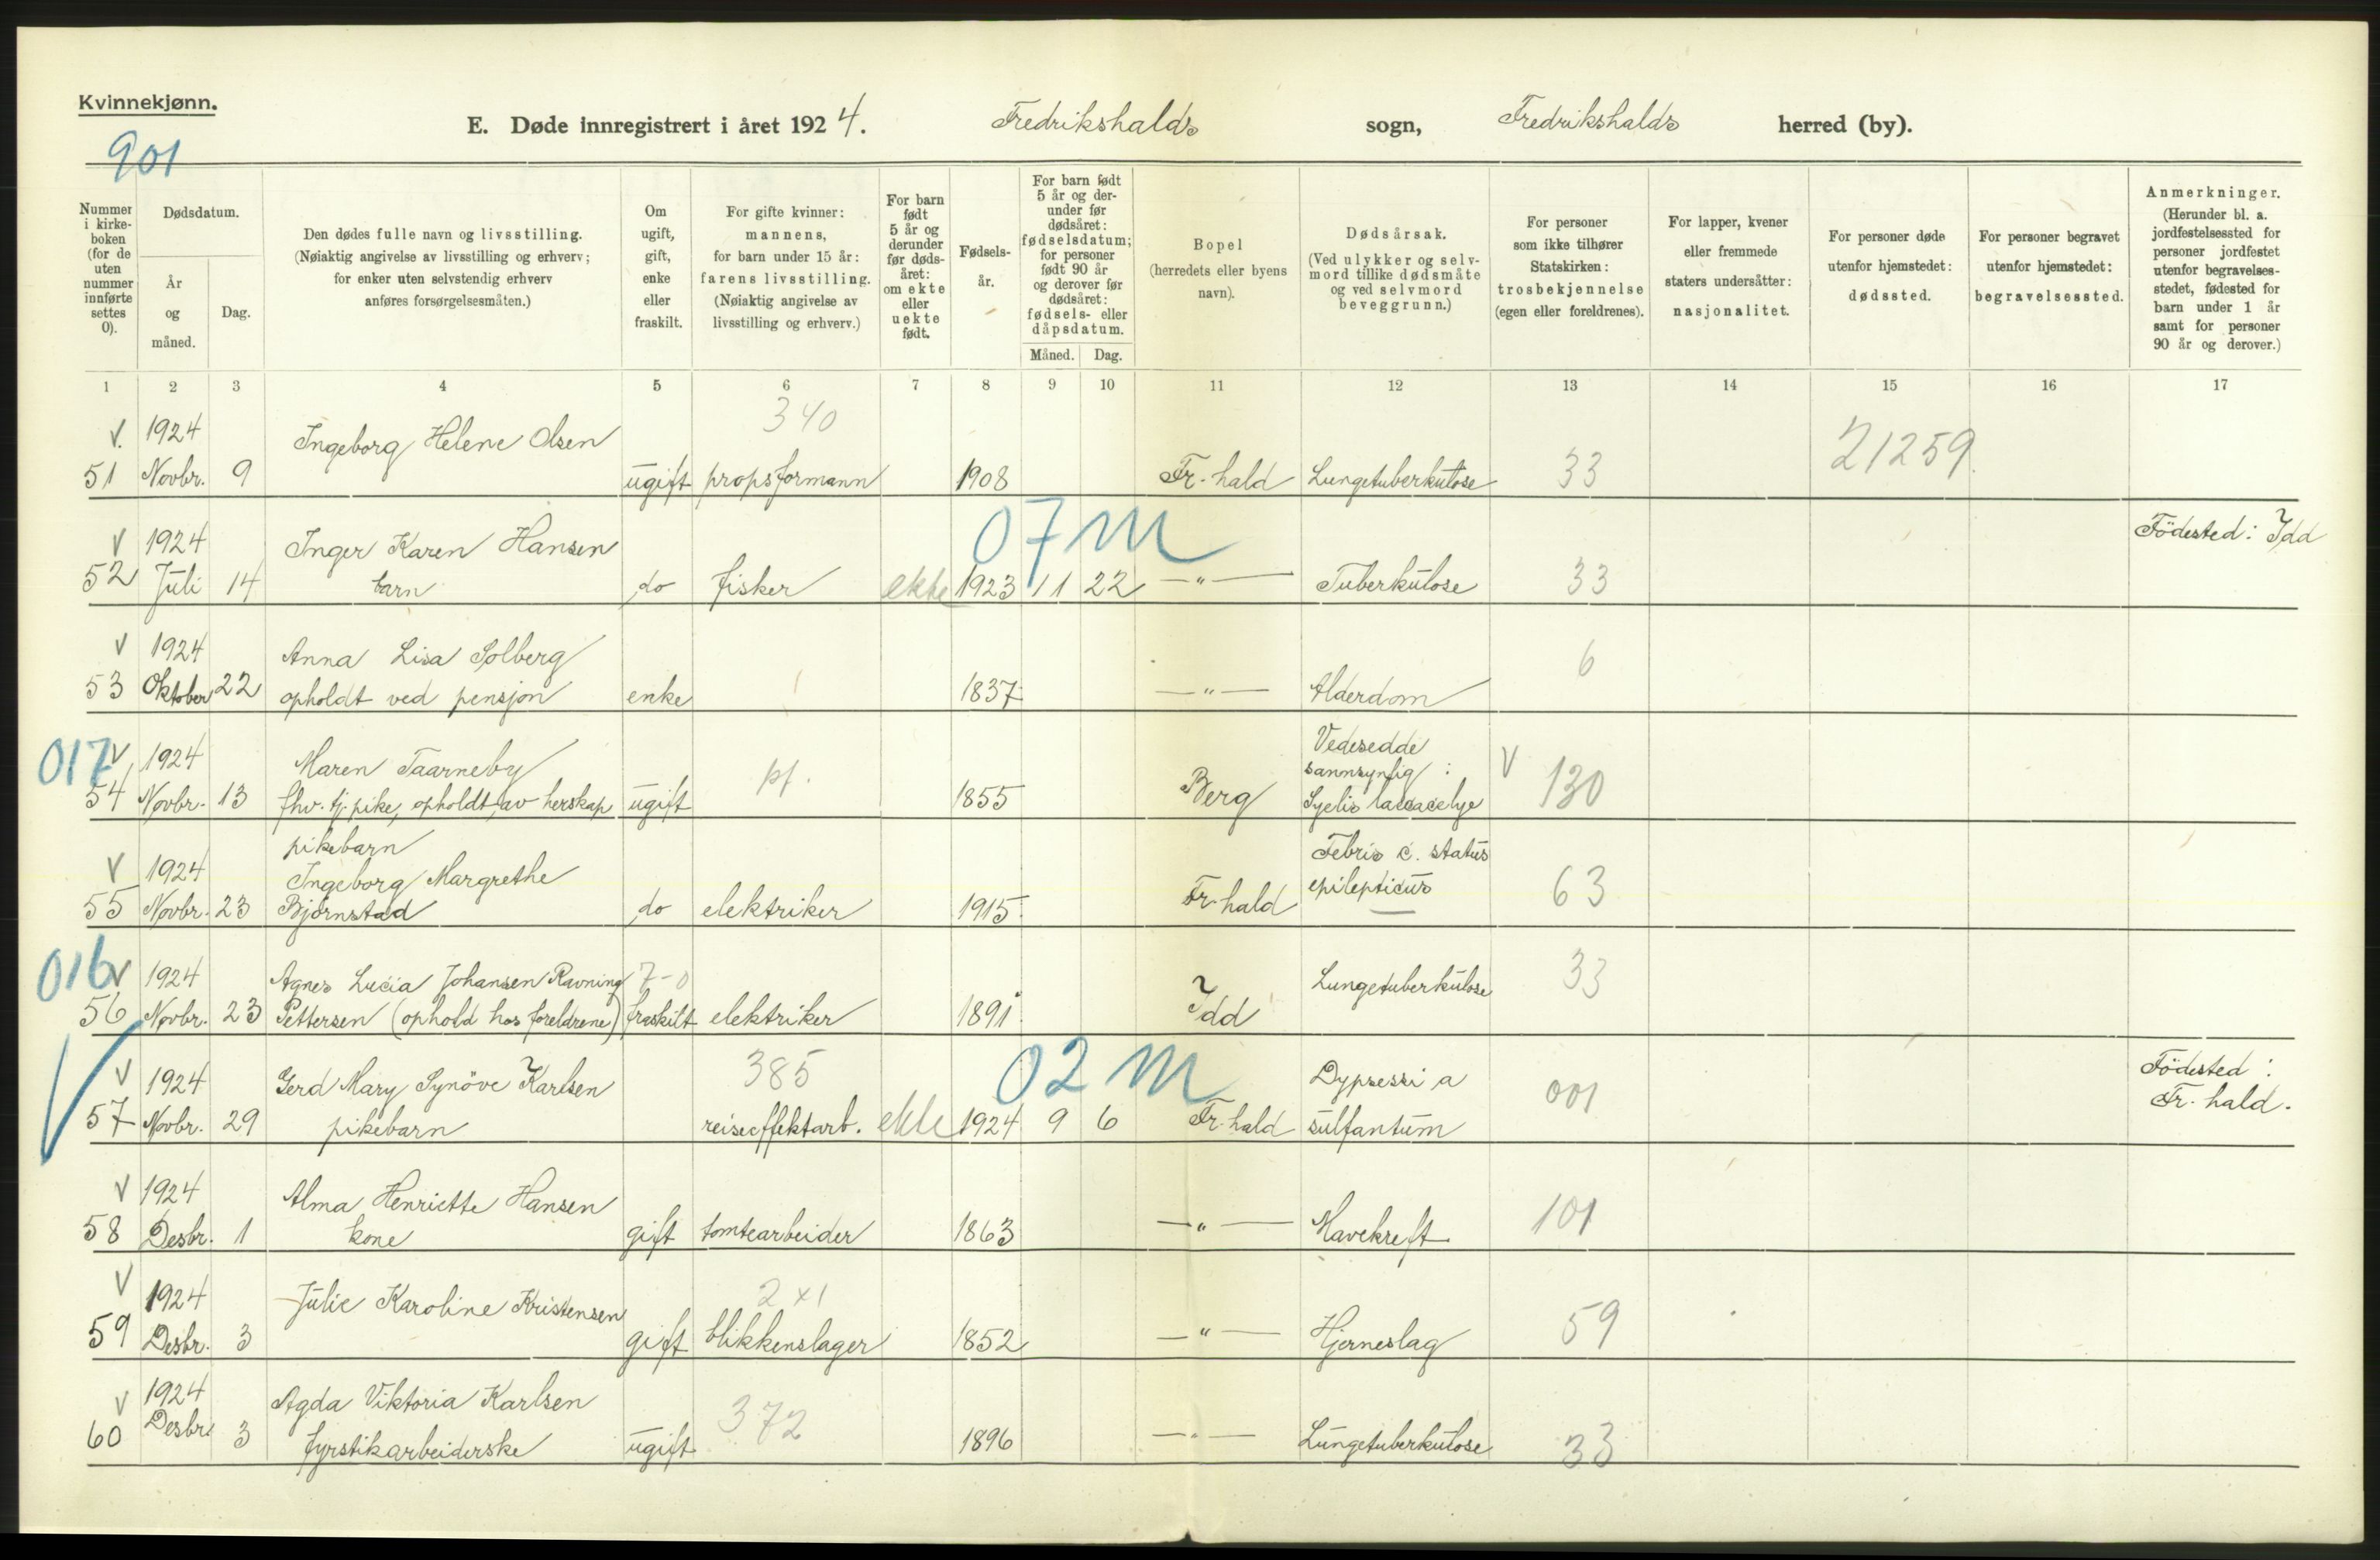 Kvinnekjønn.
901
E. Døde innregistrert i året 1924. Fredrikshalds sogn, Fredrikshalds herred (by).
Nummer i kirke-boken (for de uten nummer innførte settes 0).
Dødsdatum.
År og måned.
Dag.
Den dødes fulle navn og livsstilling.
(Nøiaktig angivelse av livsstilling og erhverv;
for enker uten selvstendig erhverv
anføres forsørgelsesmåten.)
Om ugift, gift, enke eller fraskilt.
For gifte kvinner:
mannens,
for barn under 15 år:
farens livsstilling.
(Nøiaktig angivelse av
livsstilling og erhverv.)
For barn født 5 år og derunder før døds-året: om ekte eller uekte født.
Fødsels-år.
For barn født 5 år og der-under før dødsåret: fødselsdatum; for personer født 90 år og derover før dødsåret: fødsels- eller dåpsdatum.
Måned. Dag.
Bopel
(herredets eller byens
navn).
Dødsårsak.
(Ved ulykker og selv-
mord tillike dødsmåte
og ved selvmord
beveggrunn.)
For personer
som ikke tilhører
Statskirken:
trosbekjennelse
(egen eller foreldrenes).
For lapper, kvener
eller fremmede
staters undersåtter:
nasjonalitet.
For personer døde
utenfor hjemstedet:
dødssted.
For personer begravet
utenfor hjemstedet:
begravelsessted.
Anmerkninger.
(Herunder bl. a.
jordfestelsessted for
personer jordfestet
utenfor begravelses-
stedet, fødested for
barn under 1 år
samt for personer
90 år og derover.)
1 2 3 4 5 6 7 8 9 10 11 12 13 14 15 16 17
V. 1924 Ingeborg Helene Olsen 340 21259
51 Novbr. 9 ugift propsformann 1908 Fr. hald Lungetuberkulose 33
07 M
V 1924 Inger Karen Hansen Födested: Idd
52 Juli 14 barn do fisker ekte 1923 11 22 —"— Tuberkulose 33
V 1924 Anna Lisa Solberg 6
53 Oktober 22 opholdt ved pensjon enke 1837 —"— Alderdom
017 V 1924 Maren Taarneby pf. Vedesedde
sannsynlig : V 130
54 Novbr. 13 fhv. tj. pike, opholdt av herskap ugift 1855 Berg
pikebarn Febris c. status
V 1924 Ingeborg Margrethe epilepticus 63
55 Novbr. 23 Björnstad do elektriker 1915 Fr. hald
016 V 1924 Agnes Lucia Johansen Ravning 7-0 Lungetuberkulose 33
56 Novbr. 23 Pettersen (ophold hos foreldrene) fraskilt elektriker 1891 Idd
V 1924 Gerd Mary Synöve Karlsen 385 02 M Dypsessia 001 Födested :
57 Novbr. 29 pikebarn reiseeffektarb. ekte 1924 9 6 Fr. hald sulfantum Fr. hald.
V 1924 Alma Henriette Hansen 101
58 Desbr. 1 kone gift tomtearbeider 1863 —"— Mavekreft
V 1924 Julie Karoline Kristensen 2 x 1 59
59 Desbr. 3 gift blikkenslager 1852 —"— Hjerneslag
V 1924 Agda Viktoria Karlsen 372
60 Desbr. 3 fyrstikarbeiderske ugift 1896 —"— Lungetuberkulose 33